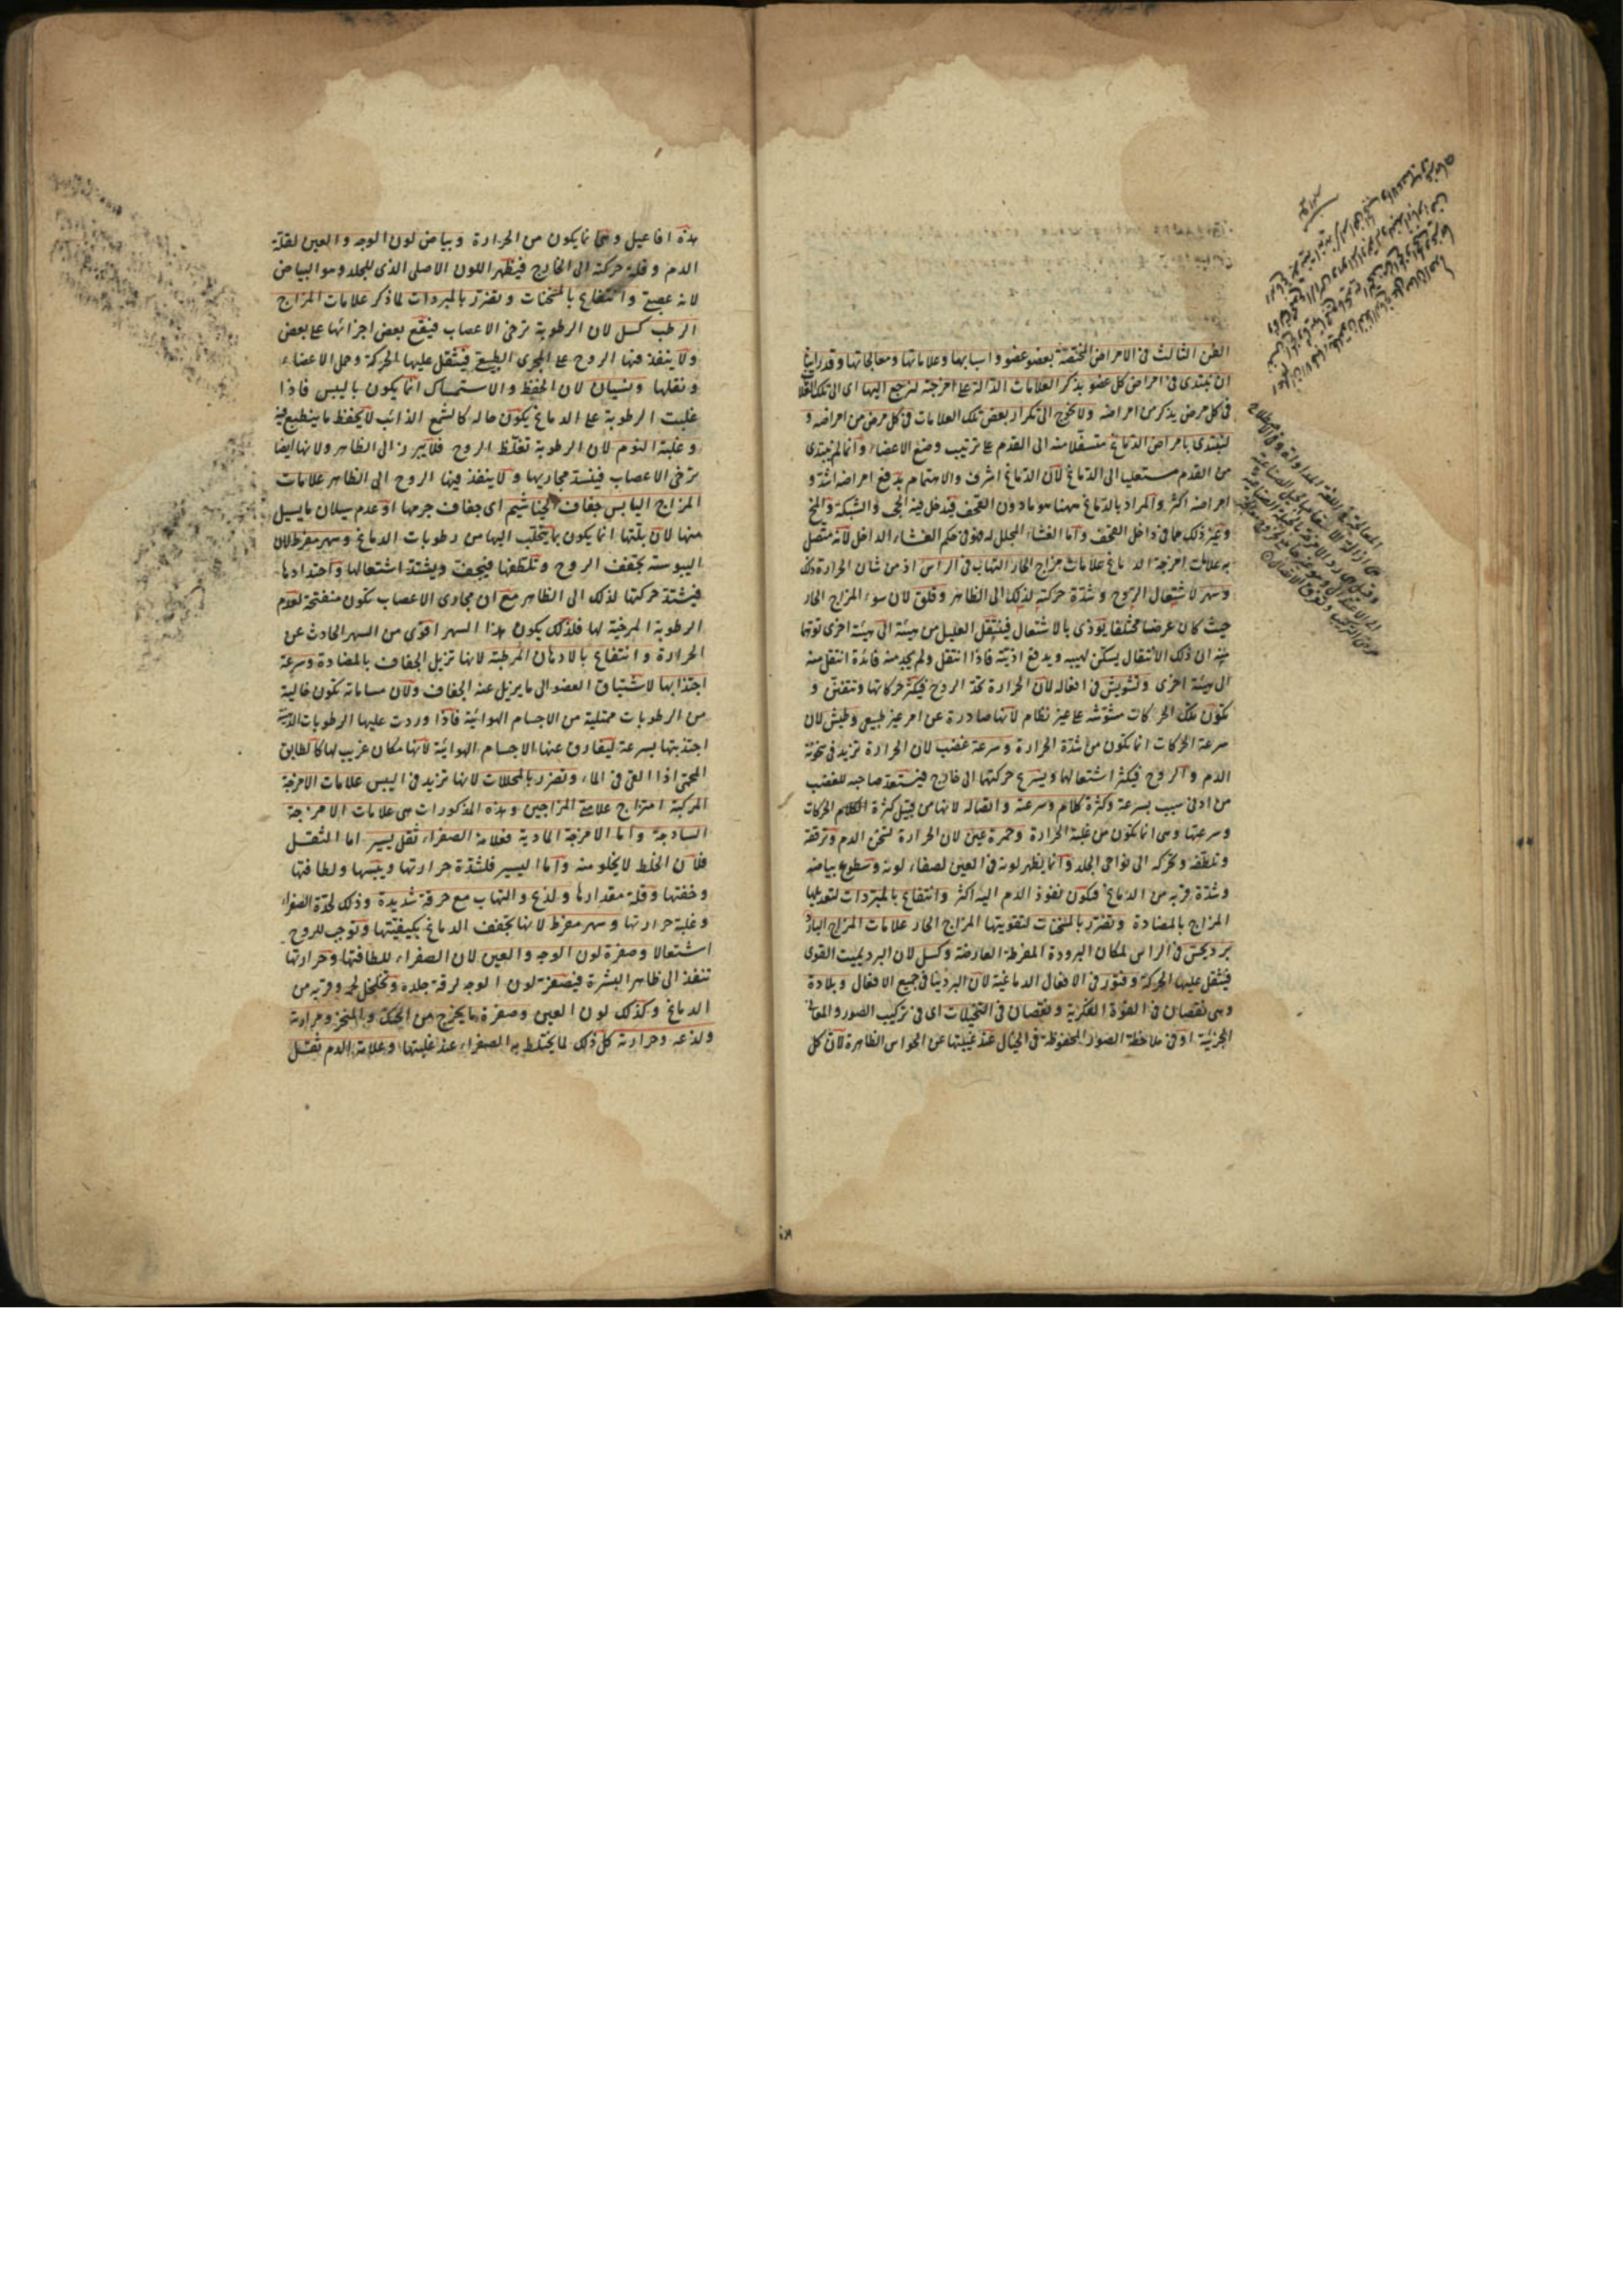 الفن الثالث فى الامراض المختصة بعضو عضو واسبابها وعلاماتها ومعالجاتها وقد راينا
ان نبتدى فى امراض كل عضو بذكر العلامات الدالة على امزجته لنرجع اليها اى الى تلك العلامات
فى كل مرض يذكر من امراضه ولا نحوج الى تكرار بعض تلك العلامات فى كل مرض من امراضه و
لنبتدى بامراض الدماغ متسفلا منه الى القدم على ترتيب وضع الاعضاء وانما لم يبتدى
من القدم مستعليا الى الدماغ لان الدماغ اشرف والاهتمام بدفع امراضه اشد و
امراضه اكثر والمراد بالدماغ ههنا هو ما دون القحف فيدخل فيه الحجب والشبكة والمخ
وغير ذلك مما فى داخل القحف واما الغشاء المجلل له فهو فى حكم الغشاء الداخل لانه متصل
به علامات امزجة الدماغ علامات مزاج الحار التهاب فى الراس اذ من شان الحرارة ذلك
وسهر لاشتعال الروح وشدة حركته لذلك الى الظاهر وقلق لان سوء المزاج الحار
حيث كان عرضا مختلفا يوذى بالاشتعال فينتقل العليل من هيئة الى هيئة اخرى توهما
منه ان ذلك الانتقال يسكن لهيبه ويدفع اذيته فاذا انتقل ولم يجد منه فائدة انتقل منه
الى هيئة اخرى وتشويش فى افعاله لان الحرارة تحد الروح فيكثر حركاتها وتتفنن و
تكون تلك الحركات مشوشة على غير نظام لانها صادرة عن امر غير طبيعى وطيش لان
سرعة الحركات انما تكون من شدة الحرارة وسرعة غضب لان الحرارة تزيد فى سخونة
الدم والروح فيكثر اشتعالها ويسرع حركتها الى خارج فيستعد صاحبه للغضب
من ادنى سبب بسرعة وكثرة كلام وسرعته واتصاله لانها من قبيل كثرة الحركات
وسرعتها وهى انما تكون من غلبة الحرارة وحمرة عين لان الحرارة تسخن الدم وترققه
وتلطفه وتحركه الى نواحى الجلد وانما يظهر لونه فى العين لصفاء لونه وسطوع بياضه
وشدة قربه من الدماغ فيكون نفوذ الدم اليه اكثر وانتفاع بالمبردات لتعديلها
المزاج بالمضادة وتضرر بالمسخنات لتقويتها المزاج الحار علامات المزاج البارد
برد يحس فى الراس لمكان البرودة المفرطة العارضة وكسل لان البرد يميت القوى
فيثقل عليها الحركة وفتور فى الافعال الدماغية لان البرد ينافى جميع الافعال وبلادة
وهى نقصان فى القوة الفكرية ونقصان فى التخيلات اى فى تركيب الصور والمعانى
الجزئية او فى ملاحظة الصور المحفوظة فى الخيال عند غيبتها عن الحواس الظاهرة لان كل
هذه افاعيل وهى انما يكون من الحرارة وبياض لون الوجه والعين لقلة
الدم وقلة حركته الى الخارج فيظهر اللون الاصلى الذى للجلد وهو البياض
لانه عصبى وانتفاع بالمسخنات وتضرر بالمبردات لما ذكر علامات المزاج
الرطب كسل لان الرطوبة ترخى الاعصاب فيقع بعض اجزائها على بعض
ولا ينفذ فيها الروح على المجرى الطبيعى فيثقل عليها الحركة وحمل الاعضاء
ونقلها ونسيان لان الحفظ والاستمساك انما يكون باليبس فاذا
غلبت الرطوبة على الدماغ يكون حاله كالشمع الذائب لا يحفظ ما ينطبع فيه
وغلبة النوم لان الرطوبة تغلظ الروح فلا يبرز الى الظاهر ولانها ايضا
ترخى الاعصاب فينسد مجاريها ولا ينفذ فيها الروح الى الظاهر علامات
المزاج اليابس جفاف الخياشيم اى جفاف جرمها او عدم سيلان ما يسيل
منها لان بلتها انما يكون بما يتحلب اليها من رطوبات الدماغ وسهر مفرط لان
اليبوسة تجفف الروح وتلطفها فيخف ويشتد اشتعالها واحتدادها
فيشتد حركتها لذلك الى الظاهر مع ان مجارى الاعصاب تكون منفتحة لعدم
الرطوبة المرخية لها فلذلك يكون هذا السهر اقوى من السهر الحادث عن
الحرارة وانتفاع بالادهان المرطبة لانها تزيل الجفاف بالمضادة وسرعة
اجتذابها لاشتياق العضو الى ما يزيل عنه الجفاف ولان مساماته تكون خالية
من الرطوبات ممتلية من الاجسام الهوائية فاذا وردت عليها الرطوبات الدهنية
اجتذبتها بسرعة ليفارق عنها الاجسام الهوائية لانها مكان غريب لها كالطابق
المحمى اذا القى فى الماء وتضرر بالمحللات لانها تزيد فى اليبس علامات الامزجة
المركبة امتزاج علامتى المزاجين وهذه المذكورات هى علامات الامزجة
الساذجة واما الامزجة المادية فعلامة الصفراء ثقل يسير اما الثقل
فلان الخلط لا يخلو منه واما اليسير فلشدة حرارتها ويبسها ولطافتها
وخفتها وقلة مقدارها ولذع والتهاب مع حرقة شديدة وذلك لحدة الصفراء
وغلبة حرارتها وسهر مفرط لانها تجفف الدماغ بكيفيتها وتوجب للروح
اشتعالا وصفرة لون الوجه والعين لان الصفراء للطافتها وحرارتها
تنفذ الى ظاهر البشرة فيصفر لون الوجه لرقة جلده وتخلخل لحمه وقربه من
الدماغ وكذلك لون العين وصفرة ما يخرج من الحنك والمنخر ومرارته
ولذعه وحرارته كل ذلك لما يختلط به الصفراء عند غلبتها وعلامة الدم ثقل